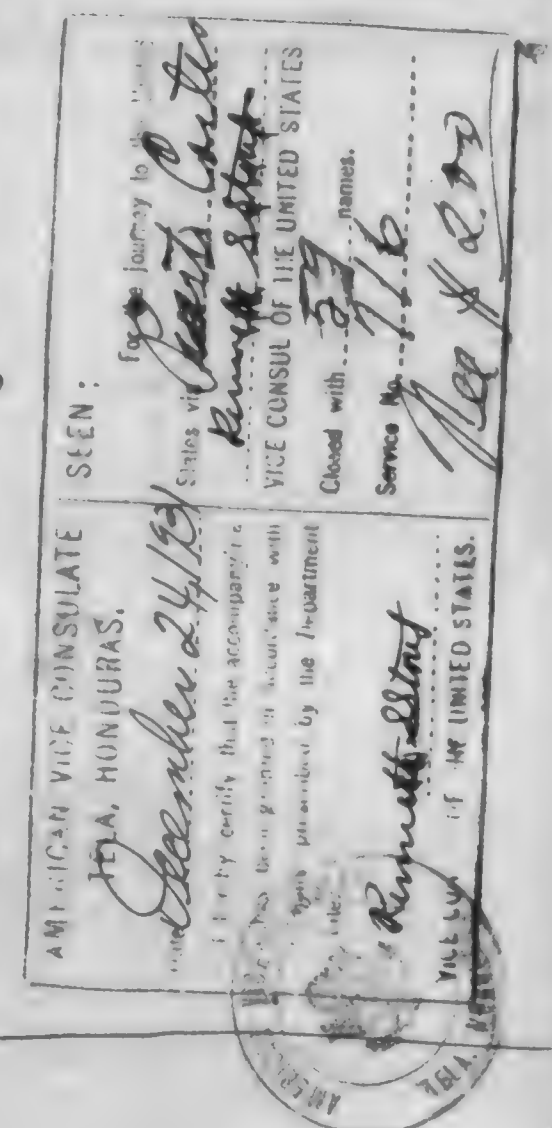 AMERICAN VICE CONSULATE
TELA, HONDURAS.
December 24/1921
I hereby certify that the accompanying
has been granted in accordance with
prescribed by the Department
Kenneth S Stout
VICE CONSUL OF THE UNITED STATES.
SEEN:
For the journey to the United
States via Puerto Cortes
Kenneth S Stout
VICE CONSUL OF THE UNITED STATES
Closed with 59 names.
Service No. 716
Fee $2.00
TELA,